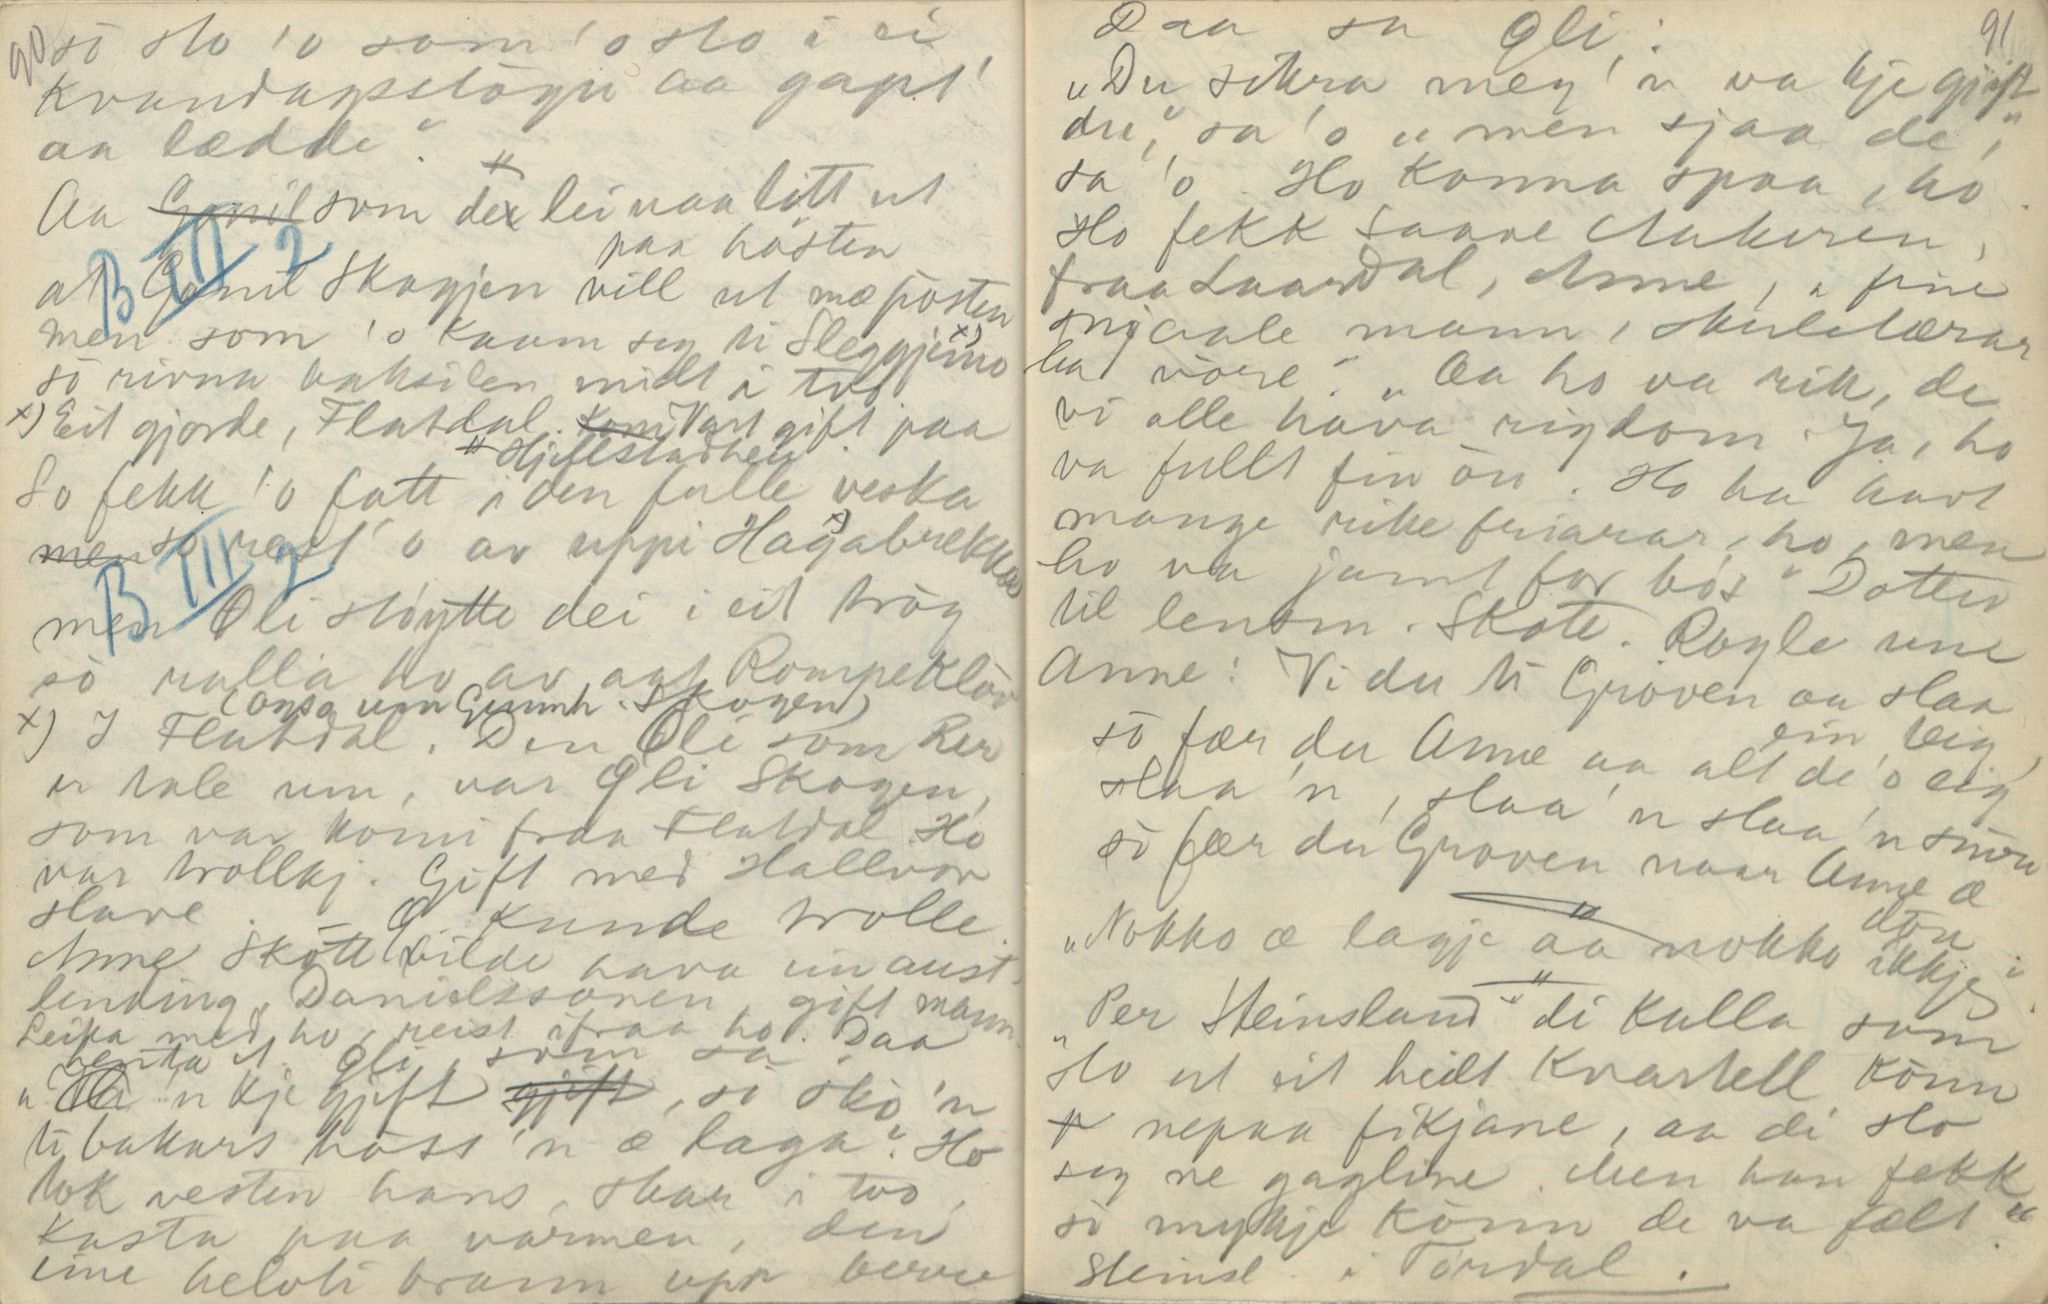 90
sò slo 'o som 'o slo i ei
kvandagsslògu aa gapt'
aa lædde".
Aa Gunil som dex lei vaa lött ut
paa hòsten
B III 2
at Gunil Skogjen vill ut mæ pòsten
men som 'o kaam seg ti Sleggjemo x)
sò rivna baksilen midt i tvo
x) Eit gjorde, Flatdal. Komi Vart gift paa
Hjeltstadhei
So fekk 'o fatt i den fulle veska
men so reist 'o av uppi Hagabrekka x)
B III 2
men Oli støytte dei i eit tròg
sò rulla ho av aat Rompeklòv
(ogso um Gunnh. Skogen)
x) I Flatdal. Den Oli som her
er tale um, var Oli Skogen,
som var komi fraa Flatdal Ho
var trollkj. Gift med Hallvor
slave. O kunde trolle.
Anne Skott vilde hava ein aust
lending, Danielssonen, gift mann.
Leika med ho, reist ifraa ho. Daa
henta 'o Oli, som sa
"Æ 'n kje gjift gjift, sò sko 'n
ti bakars hòss 'n æ laga". Ho
tok vesten hans, skar i tvo,
kasta paa varmen, den
eine helvti brann upp berre
91
Daa sa Oli:
"Du sikra meg 'n va kje gjift
du," sa 'o "men sjaa de,"
sa 'o. Ho konna spaa, ho.
Ho fekk Saave Aakeren,
fraa Laardal, Anne, ein fine
snjaale mann, skulelærar
ha vòre". "Aa ho va rik, de
vi alle hava rigdom. Ja, ho
va fullt fin òu. Ho ha havt
mange rike friarar, ho, men
ho va jamt for bòs" Dotter
til lensm. Skott. Rogle um
Anne: Vi du ti Gròven aa slaa
sò fær du Anne aa alt de 'o eig
ein teig
slaa 'n, slaa 'n slaa 'n snòu
sò fær du Groven naar Anne æ
dòu
"Nokko æ lagje aa nokko ikkje".
"Per Steinsland" di kalla som
slo ut eit heilt kvartell kònn
nepaa fikjane, aa di slo
seg ne gagline. Men han fekk
sò mykje kònn de va fælt."
Steinsl. i Tòrdal.